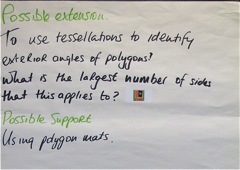 Possible extension.
To use tessellations to identify
exterior angles of polygons?
What is the largest number of sides
that this applies to?
Possible Support
Using polygon mats.